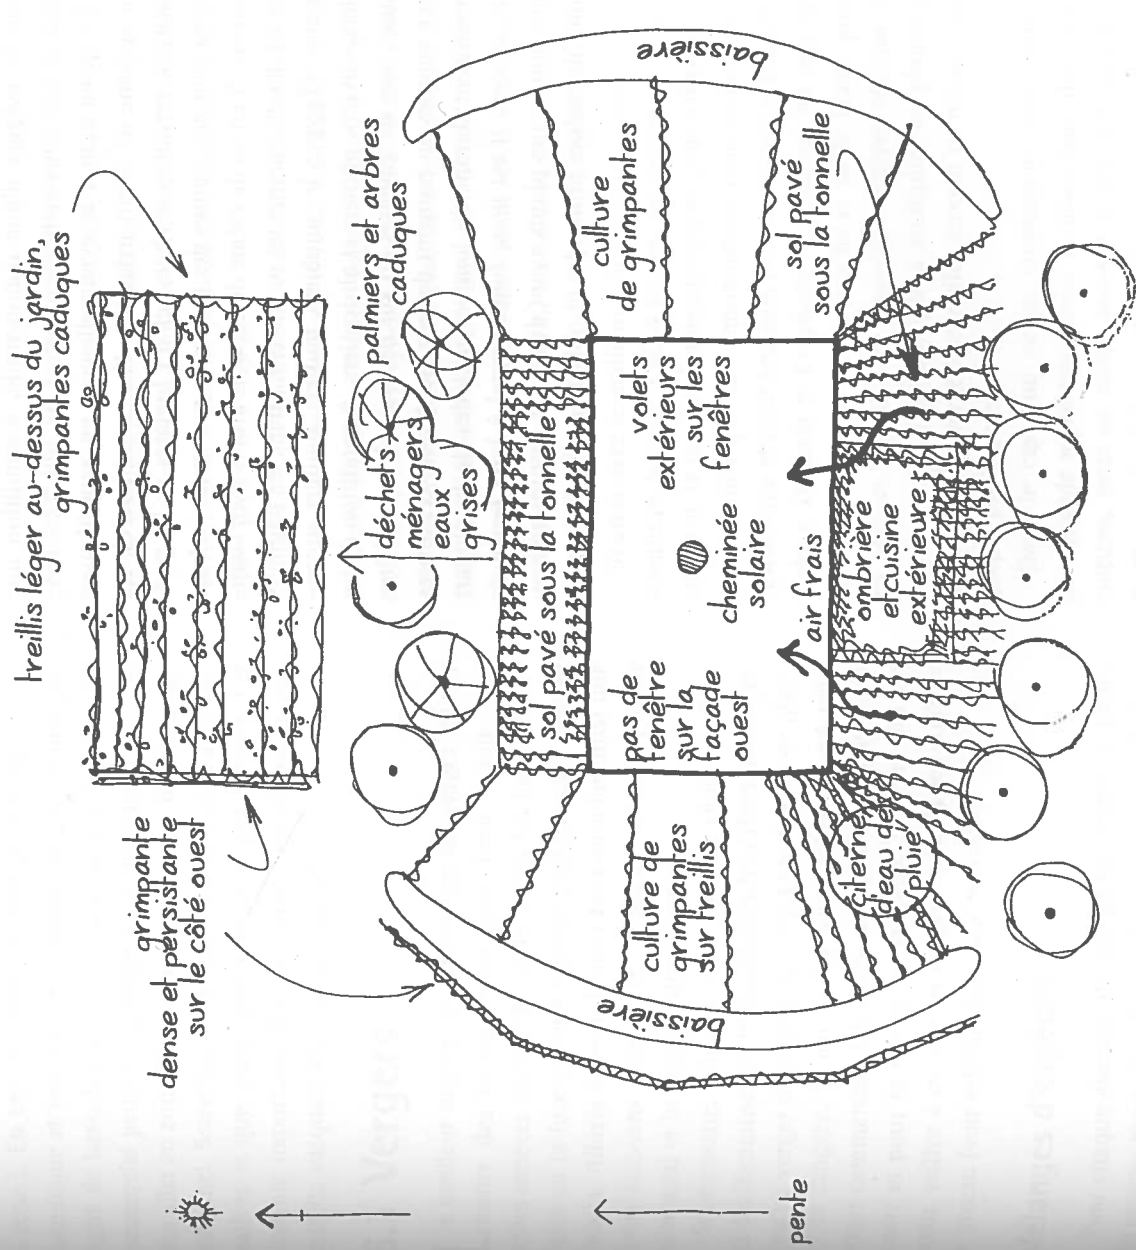 treillis léger au-dessus du jardin,
grimpantes caduques
grimpante
dense et persistante
sur le côté ouest
palmiers et arbres
caduques
déchets
ménagers
eaux
grises
sol pavé sous la tonnelle
baissière
culture
de grimpantes
sol pavé
sous la tonnelle
volets
extérieurs
sur les
fenêtres
cheminée
solaire
pas de
fenêtre
sur la
façade
ouest
air frais
ombrière
et cuisine
extérieure
culture de
grimpantes
sur treillis
citerne
d'eau de
pluie
baissière
pente